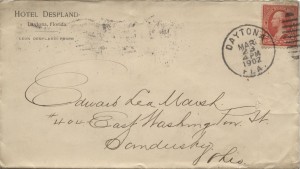 HOTEL DESPLAND
Daytona, Florida.
DAYTONA
MAR
4 PM
1902
FLA.
Edward Lea Marsh
#404 East Washington St
Sandusky
Ohio